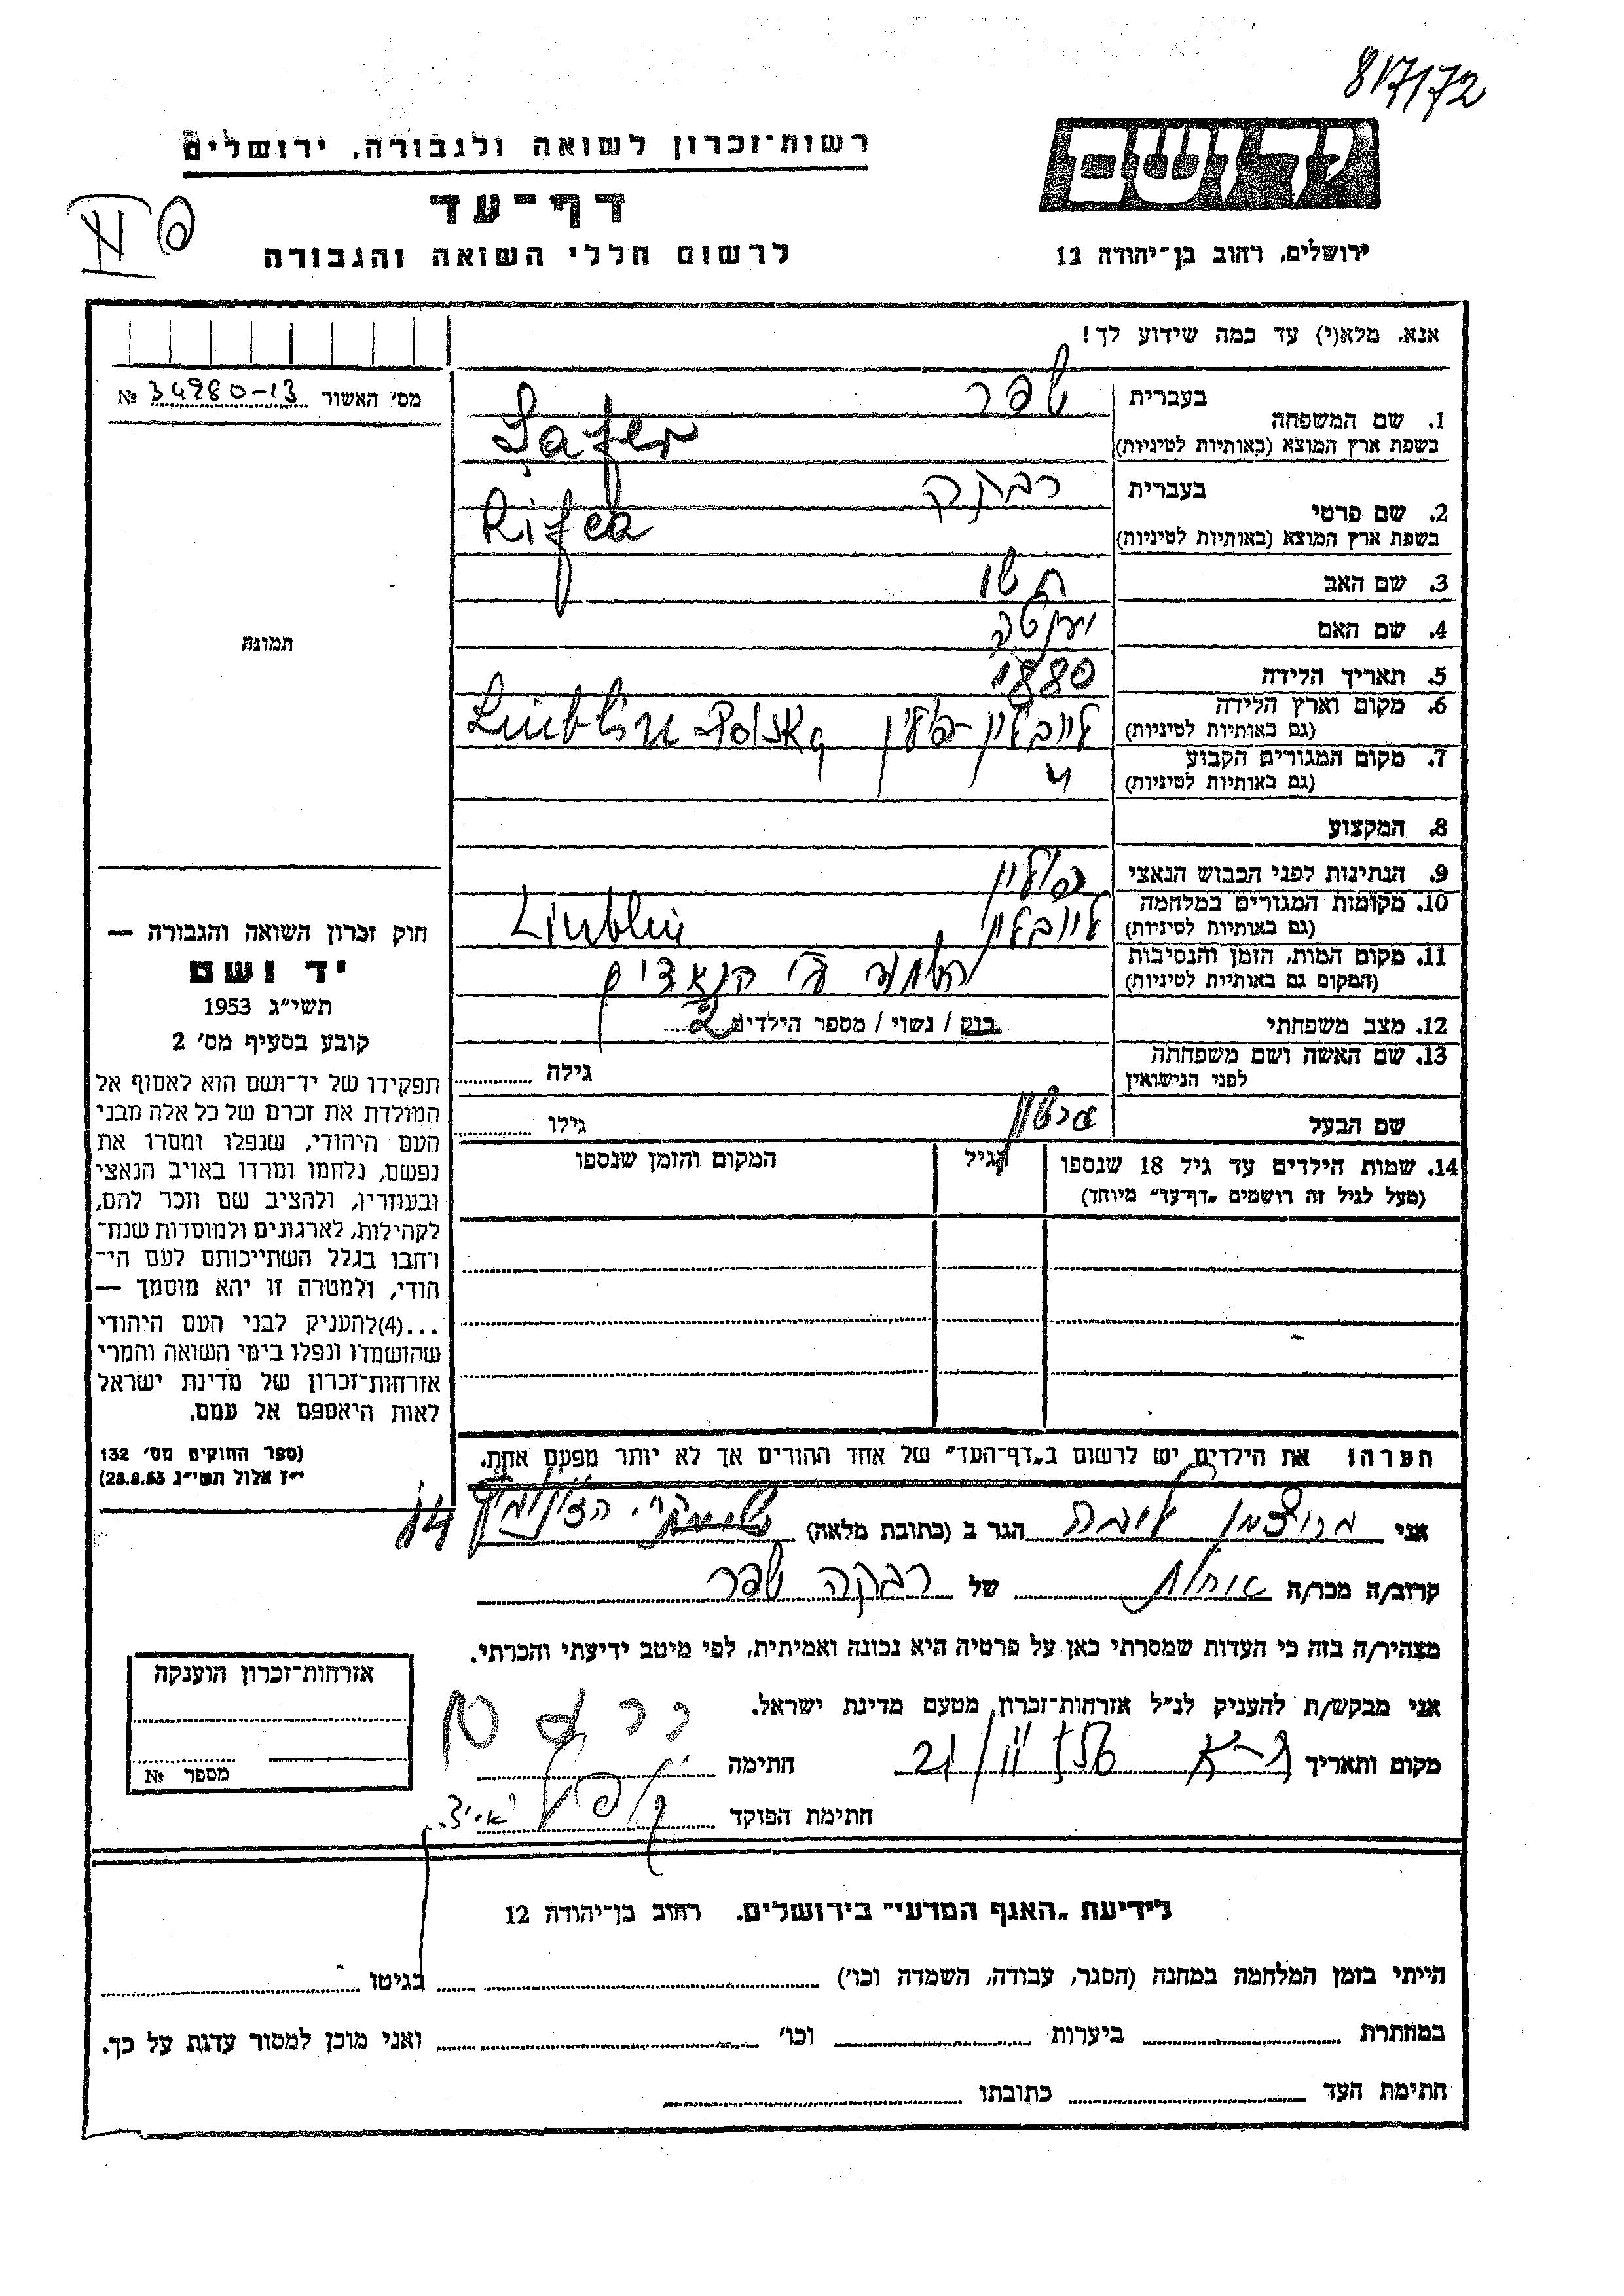 817/72
רשות־זכרון לשואה ולגבורה, ירושלים
דף־עד
לרשום חללי השואה והגבורה
יד ושם
ירושלים, רחוב בן־יהודה 12
אנא, מלא(י) עד כמה שידוע לך!
מס׳ האשור № 34980-13
1. שם המשפחה
בעברית שפר
בשפת ארץ המוצא (באותיות לטיניות) Şafer
2. שם פרטי
בעברית רבקה
בשפת ארץ המוצא (באותיות לטיניות) Rifca
3. שם האב
4. שם האם
5. תאריך הלידה 1880
6. מקום וארץ הלידה
(גם באותיות לטיניות) ליובלין פולין Liublin Polska
7. מקום המגורים הקבוע
(גם באותיות לטיניות) "
8. המקצוע
9. הנתינות לפני הכבוש הנאצי פולין
10. מקומות המגורים במלחמה
(גם באותיות לטיניות) ליובלין Liublin
11. מקום המות, הזמן והנסיבות
(המקום גם באותיות לטיניות) ע״י הנאצים
12. מצב משפחתי רווק / נשוי / מספר הילדים 2
13. שם האשה ושם משפחתה
לפני הנישואין גילה
שם הבעל גרשון גילו
14. שמות הילדים עד גיל 18 שנספו
(מעל לגיל זה רושמים „דף־עד״ מיוחד)
הגיל
המקום והזמן שנספו
הערה! את הילדים יש לרשום ב„דף־העד״ של אחד ההורים אך לא יותר מפעם אחת.
תמונה
חוק זכרון השואה והגבורה —
יד ושם
תשי״ג 1953
קובע בסעיף מס׳ 2
תפקידו של יד־ושם הוא לאסוף אל
המולדת את זכרם של כל אלה מבני
העם היהודי, שנפלו ומסרו את
נפשם, נלחמו ומרדו באויב הנאצי
ובעוזריו, ולהציב שם וזכר להם,
לקהילות, לארגונים ולמוסדות שנח־
רחבו בגלל השתייכותם לעם הי־
הודי, ולמטרה זו יהא מוסמך —
...(4)להעניק לבני העם היהודי
שהושמדו ונפלו בימי השואה והמרי
אזרחות־זכרון של מדינת ישראל
לאות היאספם אל עמם.
(ספר החוקים מס׳ 132
י״ז אלול תשי״ג 28.8.53)
אני הגר ב (כתובת מלאה) 14
קרוב/ה מכר/ה אחות של רבקה שפר
מצהיר/ה בזה כי העדות שמסרתי כאן על פרטיה היא נכונה ואמיתית, לפי מיטב ידיעתי והכרתי.
אני מבקש/ת להעניק לנ״ל אזרחות־זכרון מטעם מדינת ישראל.
מקום ותאריך ת-א 21/ חתימה
חתימת הפוקד
אזרחות־זכרון הוענקה
מספר №
לידיעת „האגף המדעי״ בירושלים. רחוב בן־יהודה 12
הייתי בזמן המלחמה במחנה (הסגר, עבודה, השמדה וכו׳) בגיטו
במחתרת ביערות וכו׳ ואני מוכן למסור עדות על כך.
חתימת העד כתובתו